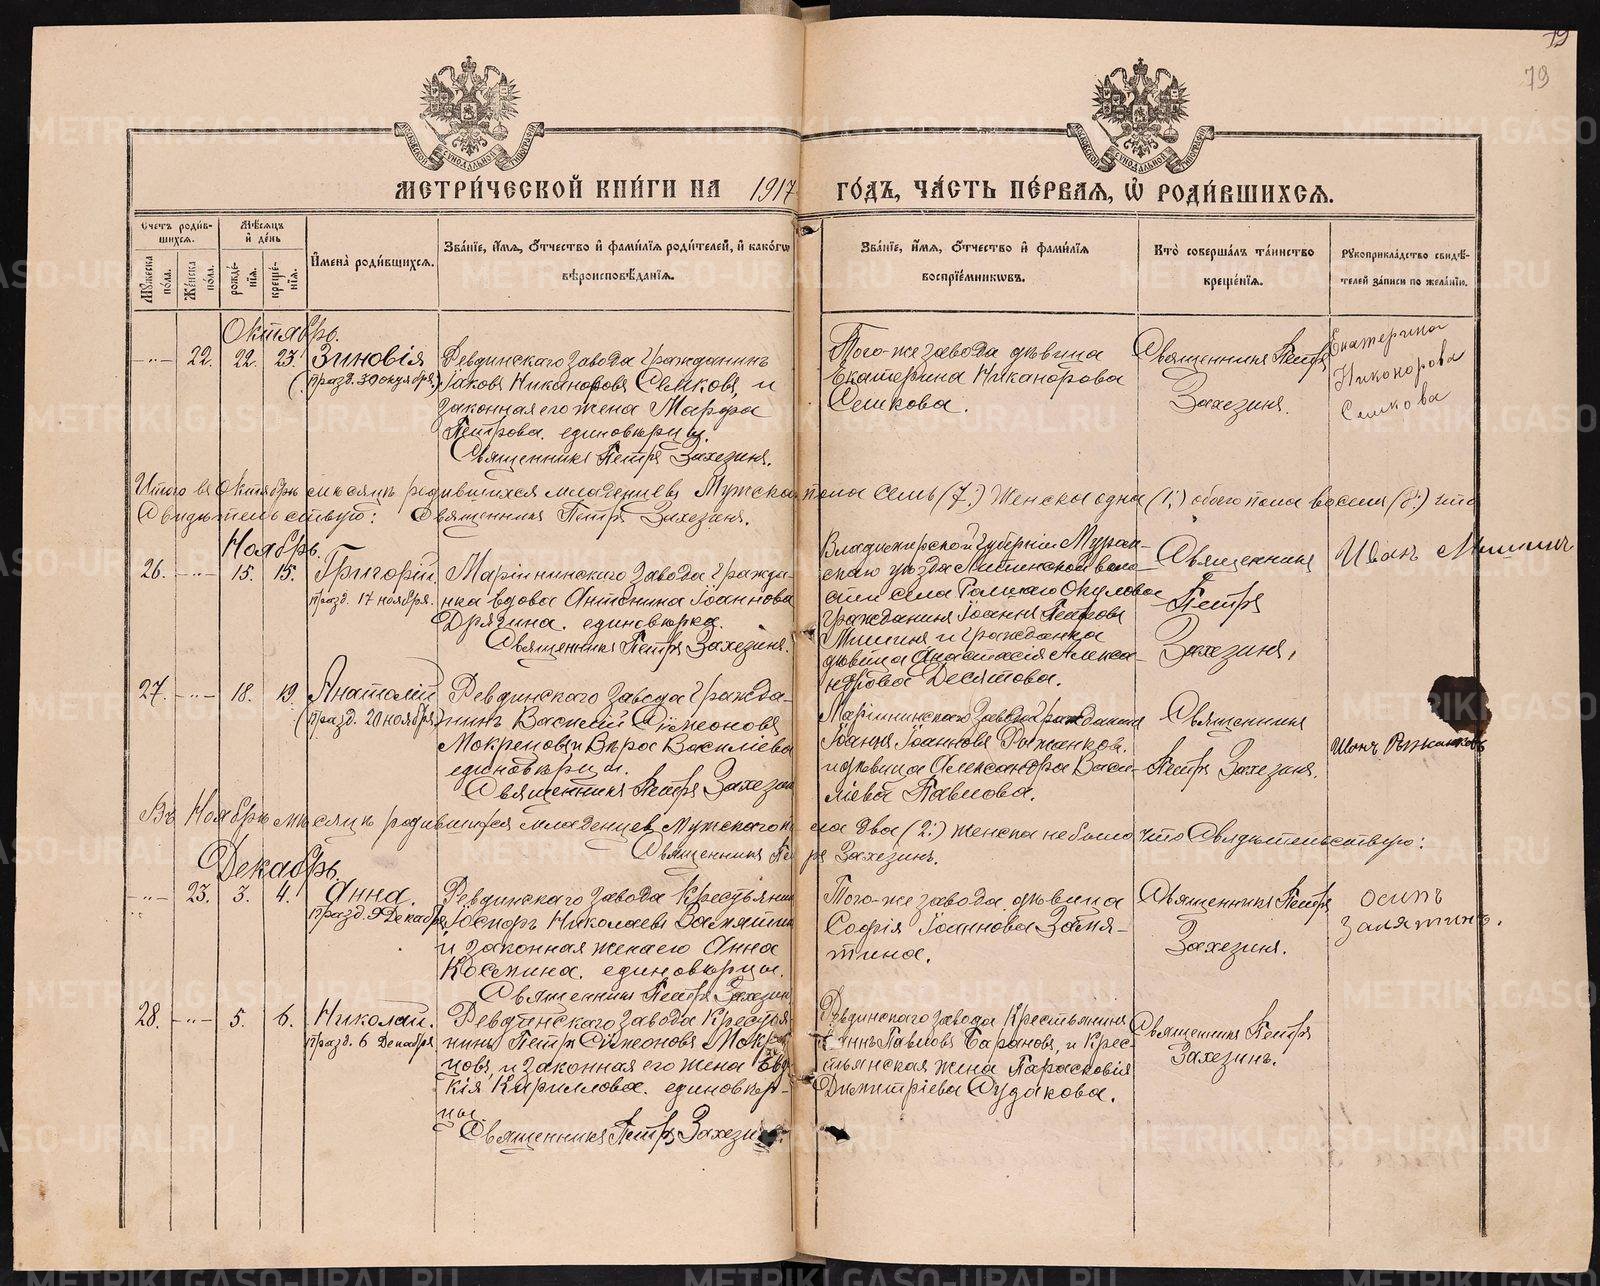 79
79
МЕТРИ́ЧЕСКОЙ КНИ́ГИ НА 1917 ГО́ДЪ, ЧА́СТЬ ПЕ́РВАЯ, Ѡ҆ РОДИ́ВШИХСЯ.
Счетъ роди́вшихся.
Мꙋ́жеска по́ла.
Же́нска по́ла.
Мѣ́сяцъ и҆ де́нь
рожде́нїя.
креще́нїя.
И҆мена̀ роди́вшихся.
Зва́нїе, и҆́мя, ѻ҆́тчество и҆ фами́лїя роди́телей, и҆ како́гѡ вѣроисповѣ́данїя.
Зва́нїе, и҆́мя, ѻ҆́тчество и҆ фами́лїя воспрїе́мниковъ.
Кто̀ соверша́лъ та́инство креще́нїя.
Рꙋкоприкла́дство свидѣ́телей за́писи по жела́нїю.
Октябрь.
22. 22. 23. Зиновія
(празд. 30 октября)
Ревдинскаго завода гражданинъ
Іаковъ Никаноровъ Семковъ, и
законная его жена Марфа
Петрова. единовѣрцы.
Священникъ Петръ Захезинъ.
Того-же завода дѣвица
Екатерина Никанорова
Семкова.
Священникъ Петръ
Захезинъ.
Екатерина
Никонорова
Семкова
Итого въ Октябрѣ мѣсяцѣ родившихся младенцевъ Мужска пола семь (7.) Женска одна (1.) обоего пола восемь (8.) что
Свидѣтельствую: Священникъ Петръ Захезинъ.
Ноябрь.
26. 15. 15. Григорій
празд. 17 ноября.
Маріинскаго завода гражда-
нка вдова Антонина Іоаннова
Дрягина. единовѣрка.
Священникъ Петръ Захезинъ.
Владимирской губерніи Муром-
скаго уѣзда
гражданинъ Іоаннъ Петровъ
Мишинъ и гражданка
дѣвица Анастасія Алекса-
ндрова Десятова.
Священникъ
Петръ
Захезинъ.
Иванъ Мишинъ
27. 18. 19. Анатолій
(празд. 20 ноября)
Ревдинскаго завода гражда-
нинъ Василій Сѵмеоновъ
Мокрецовъ и Вѣра Василіева
единовѣрцы.
Священникъ Петръ Захезин
Маріинскаго завода гражданинъ
Іоаннъ Іоанновъ Рыжанков.
и дѣвица Александра Васи-
ліева Павлова.
Священникъ
Петръ Захезинъ.
Иванъ Рыжанковъ
Въ Ноябрѣ мѣсяцѣ родившихся младенцев Мужскаго пола два (2:) женска небыло что Свидѣтельствую:
Священникъ Петръ Захезинъ.
Декабрь.
23. 3. 4. Анна.
празд. 9 Декабря
Ревдинскаго завода Крестьянин
Іосифъ Николаевъ Замятин
и законная жена его Анна
Косьмина. единовѣрцы.
Священникъ Петръ Захезин
Того-же завода дѣвица
Софія Іоаннова Замя-
тина.
Священникъ Петръ
Захезинъ.
Осипъ
Замятинъ.
28. 5. 6. Николай.
празд. 6 Декабря
Ревдинскаго завода Крестья
нинъ Петръ Сѵмеоновъ Мокре
цовъ, и законная его жена Евдо
кія Кириллова. единовѣр-
цы.
Священникъ Петръ Захезин
Ревдинскаго завода Крестьянинъ
Іоаннъ Павловъ Барановъ, и Крес-
тьянская жена Парасковія
Димитріева Судакова.
Священникъ Петръ
Захезинъ.
METRIKI.GASO-URAL.RU